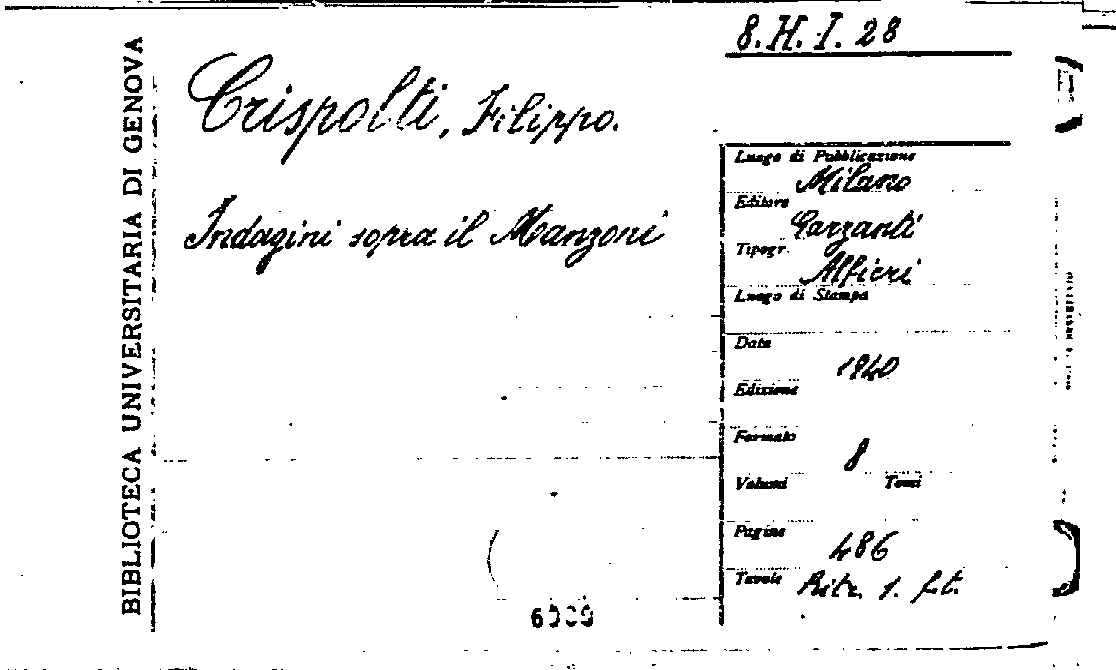 8.H.I.28
BIBLIOTECA UNIVERSITARIA DI GENOVA
Crispolti, Filippo.
Indagini sopra il Manzoni
Luogo di Pubblicazione
Milano
Editore
Garzanti
Tipogr.
Alfieri
Luogo di Stampa
Data
1940
Edizione
Formato
8
Volumi Tomi
Pagine
486
Tavole Ritr. 1. f.t.